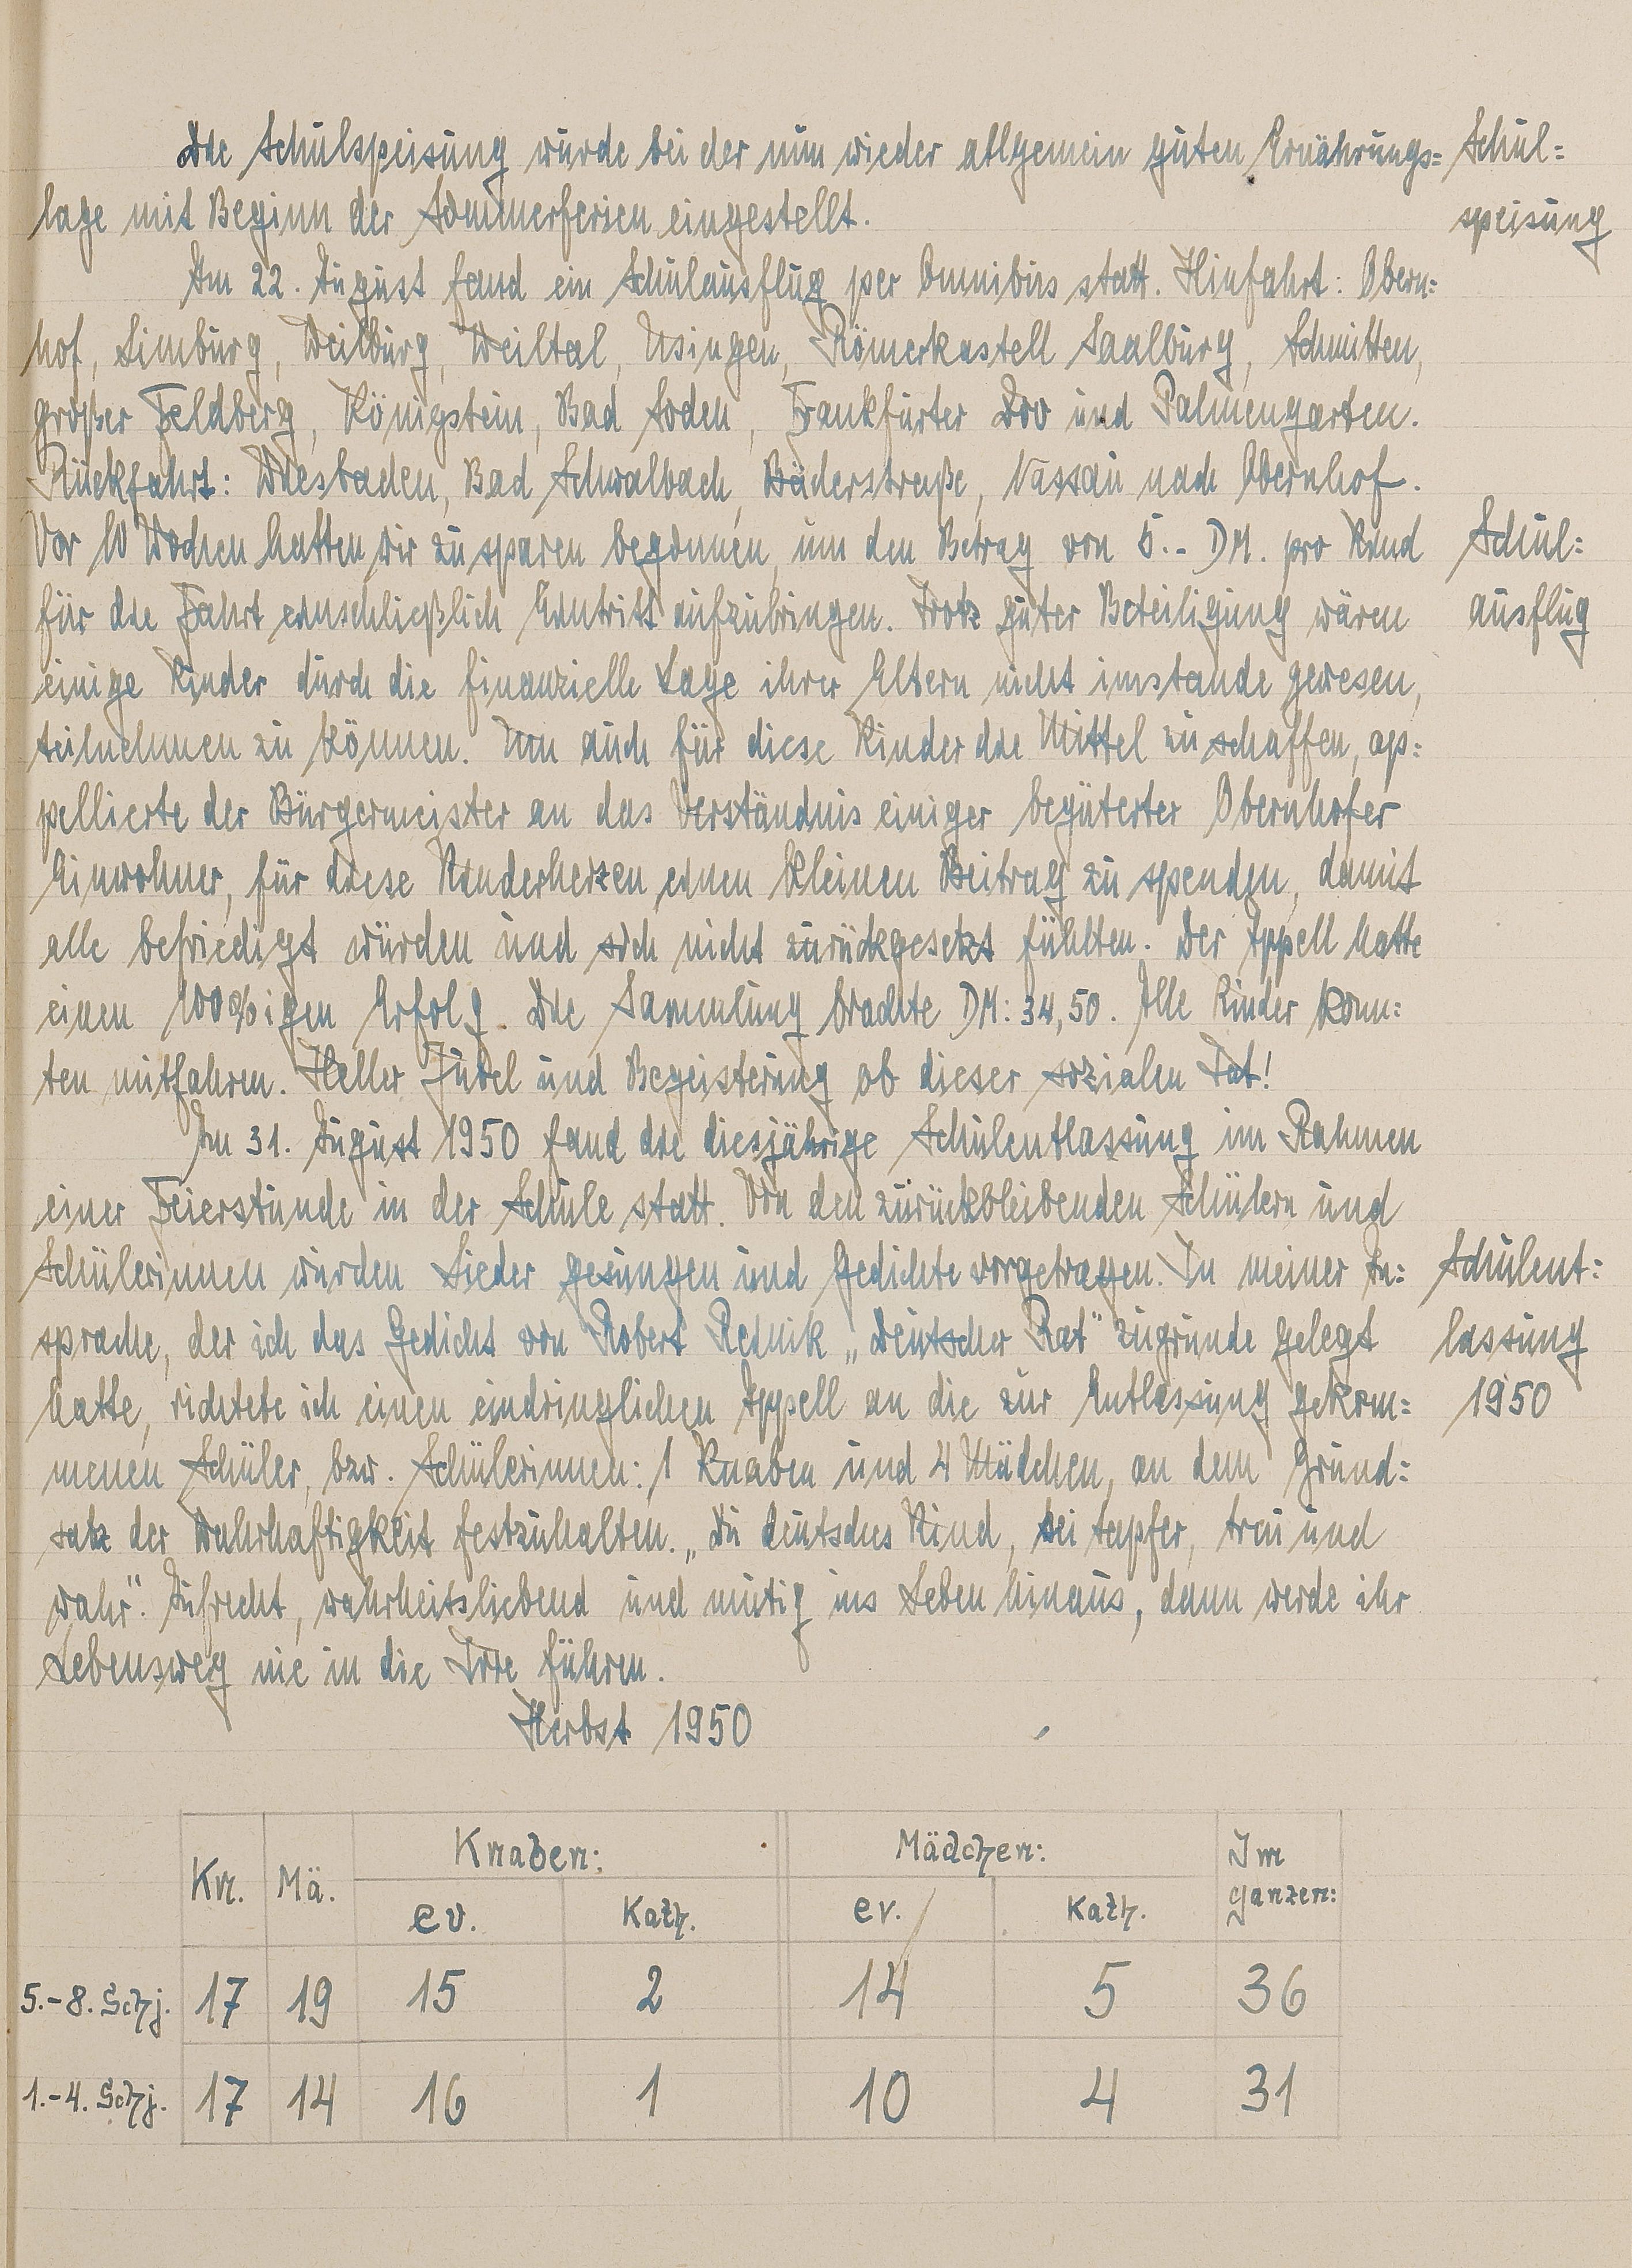 Die Schulspeisung wurde bei der nun wieder allgemein guten Ernährungs=
Schul=
lage mit Beginn der Sommerferien eingestellt.
speisung
Am 22. August fand ein Schulausflug per Omnibus statt. Hinfahrt: Obern=
hof, Limburg, Weilburg, Weiltal, Usingen, Römerkastell Saalburg, Schmitten,
großer Feldberg, Königstein, Bad Soden, Frankfurter Zoo und Palmengarten.
Rückfahrt: Wiesbaden, Bad Schwalbach, Bäderstraße, Nassau nach Obernhof.
Vor 10 Wochen hatten wir zu sparen begonnen, um den Betrag von 5.- DM. pro Kind
Schul=
für die Fahrt einschließlich Eintritt aufzubringen. Trotz guter Beteiligung wären
ausflug
einige Kinder durch die finanzielle Lage ihrer Eltern nicht imstande gewesen,
teilnehmen zu können. Um auch für diese Kinder die Mittel zu schaffen, ap=
pellierte der Bürgermeister an das Verständnis einiger begüterter Obernhofer
Einwohner, für diese Kinderherzen einen kleinen Beitrag zu spenden, damit
alle befriedigt würden und sich nicht zurückgesetzt fühlten. Der Appell hatte
einen 100%igen Erfolg. Die Sammlung brachte DM: 34,50. Alle Kinder konn=
ten mitfahren. Heller Jubel und Begeisterung ob dieser sozialen Tat!
Am 31. August 1950 fand die diesjährige Schulentlassung im Rahmen
einer Feierstunde in der Schule statt. Von den zurückbleibenden Schülern und
Schülerinnen wurden Lieder gesungen und Gedichte vorgetragen. In meiner An=
Schulent=
sprache, der ich das Gedicht von Robert Reinik „Deutscher Rat" zugrunde gelegt
lassung
hatte, richtete ich einen eindringlichen Appell an die zur Entlassung gekom=
1950
menen Schüler, bzw. Schülerinnen: 1 Knaben und 4 Mädchen, an dem Grund=
satz der Wahrhaftigkeit festzuhalten. „Du deutsches Kind, sei tapfer, treu und
wahr". Aufrecht, wahrheitsliebend und mutig ins Leben hinaus, dann werde ihr
Lebensweg nie in die Irre führen.
Herbst 1950
Kn. Mä. Knaben: Mädchen: Im ganzen:
ev. Kath. ev. Kath.
5.-8. Schj. 17 19 15 2 14 5 36
1.-4. Schj. 17 14 16 1 10 4 31